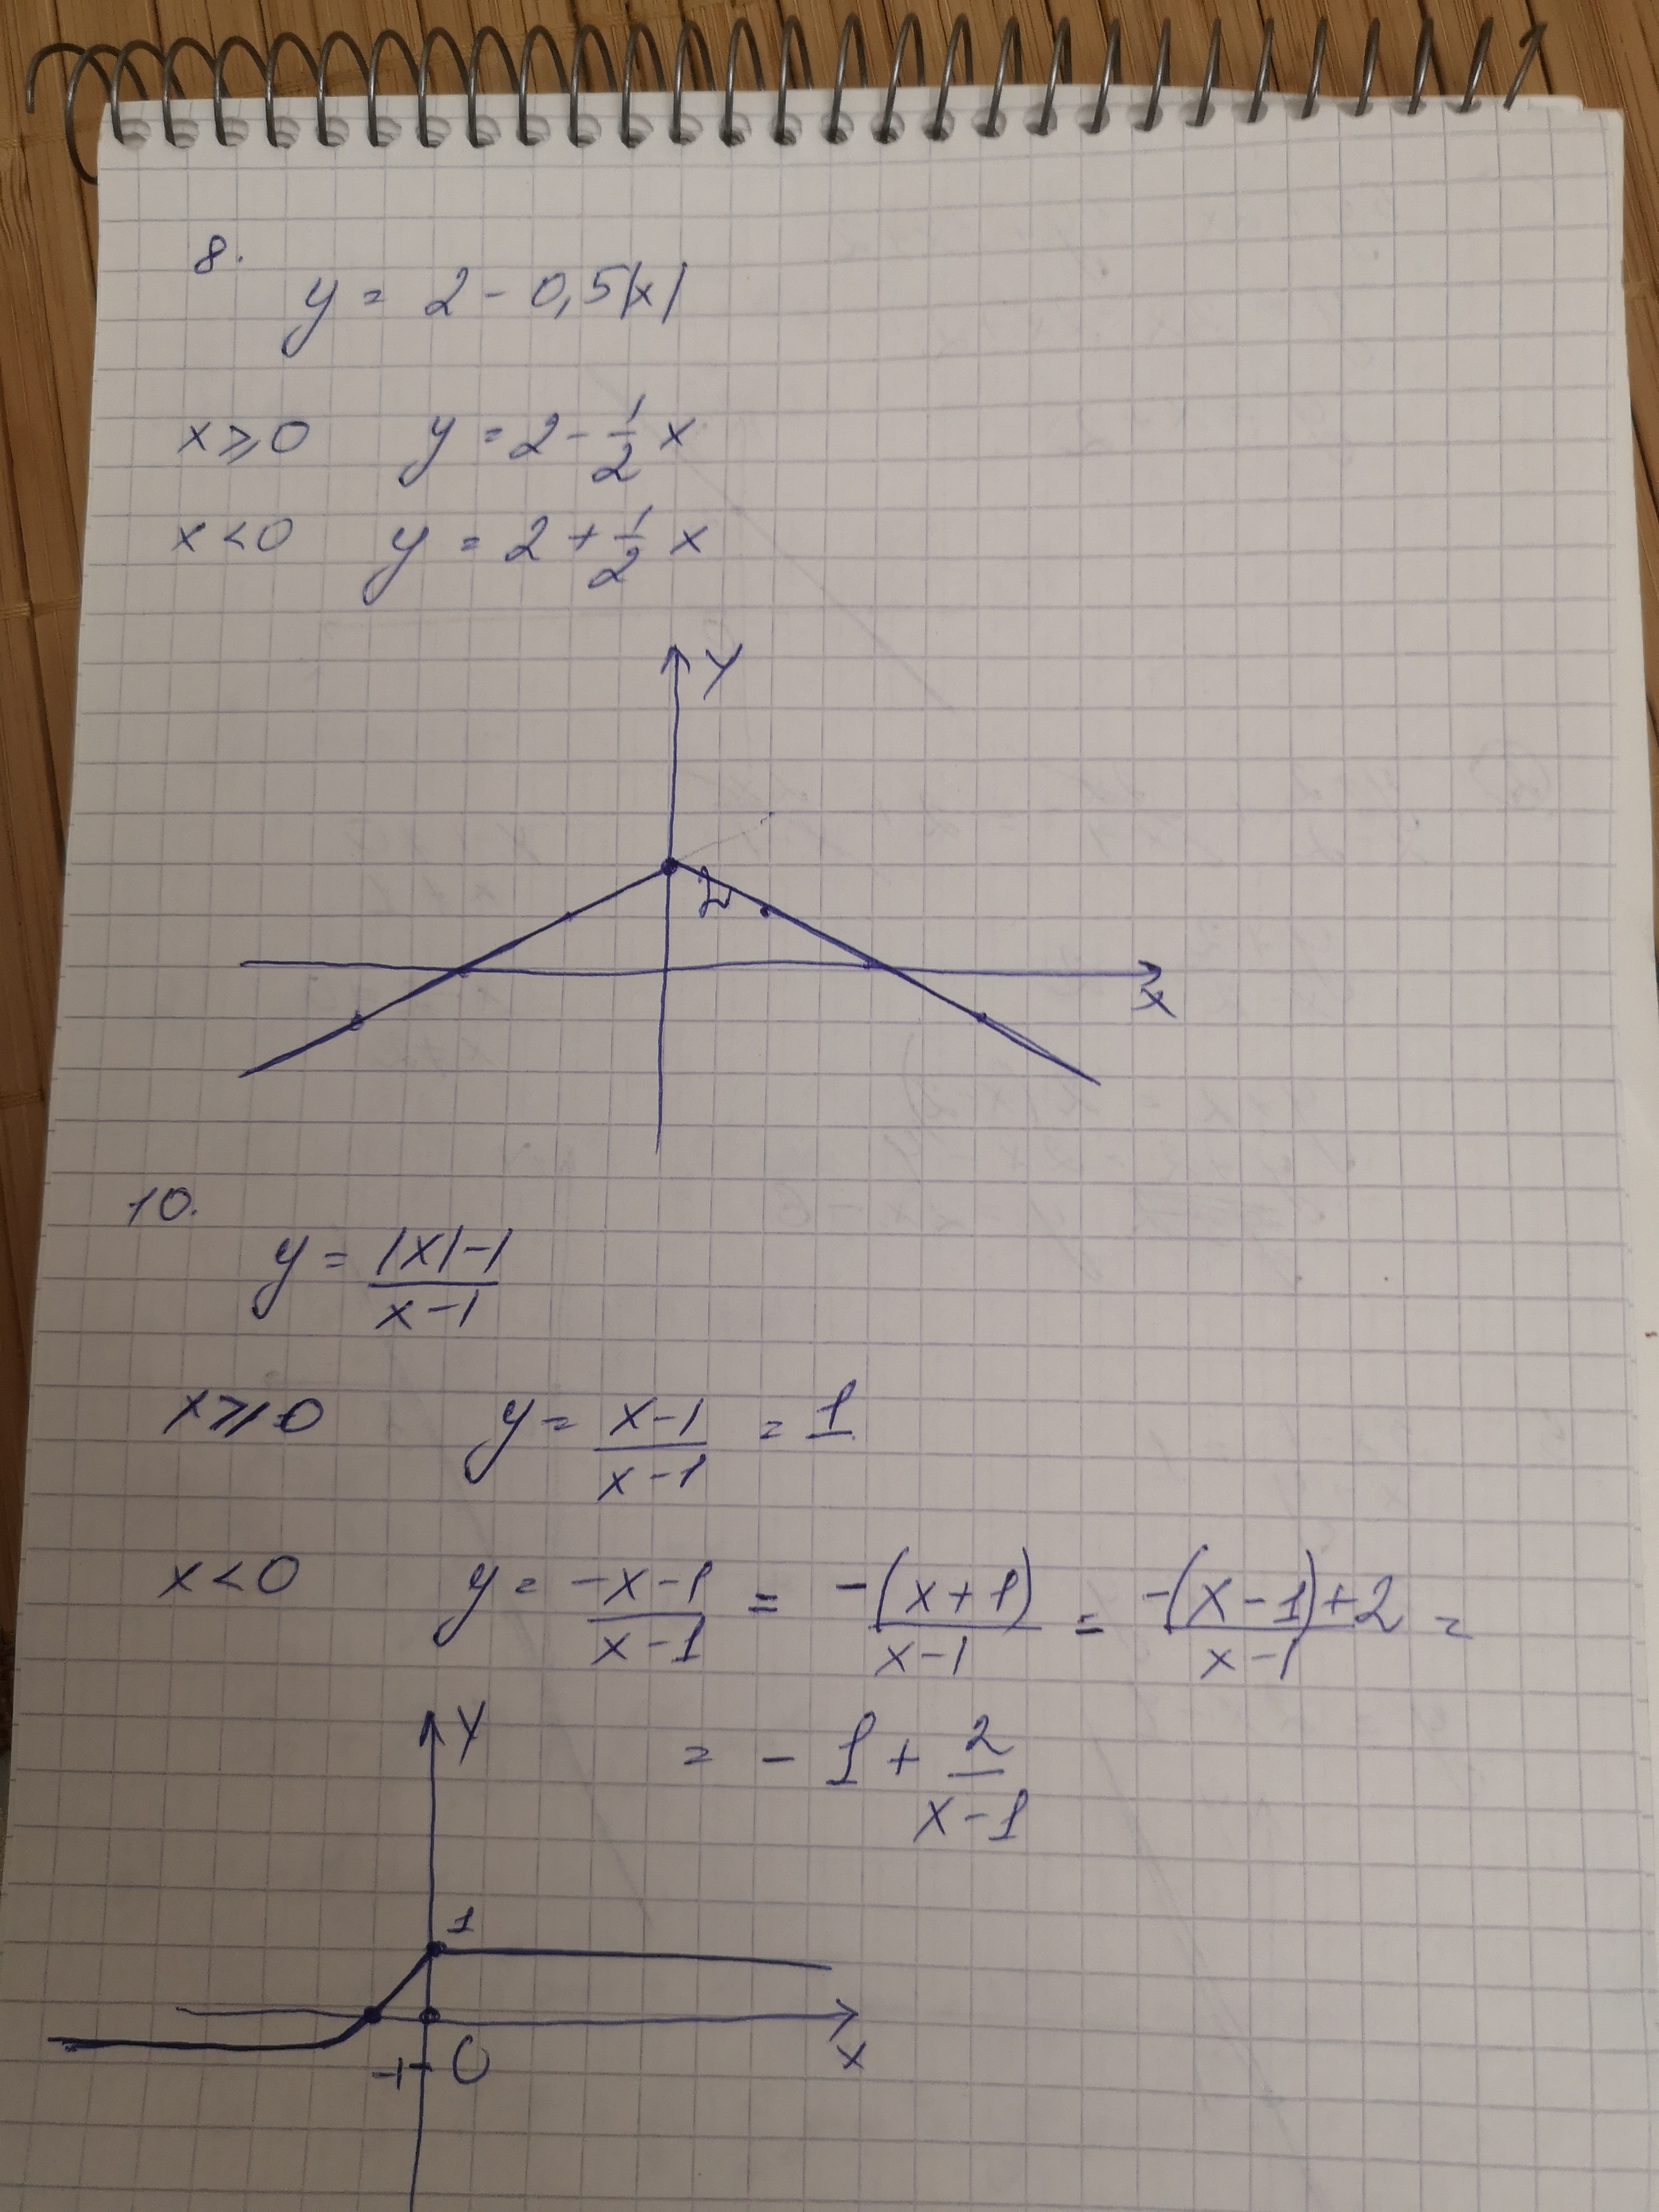 8.
y = 2 - 0,5|x|
x ⩾ 0 y = 2 - 1/2 x
x < 0 y = 2 + 1/2 x
y
2
x
10.
y = (|x|-1)/(x-1)
x ⩾ 0 y = (x-1)/(x-1) = 1
x < 0 y = (-x-1)/(x-1) = (-(x+1))/(x-1) = (-(x-1)+2)/(x-1) =
= -1 + 2/(x-1)
y
1
x
-1 0